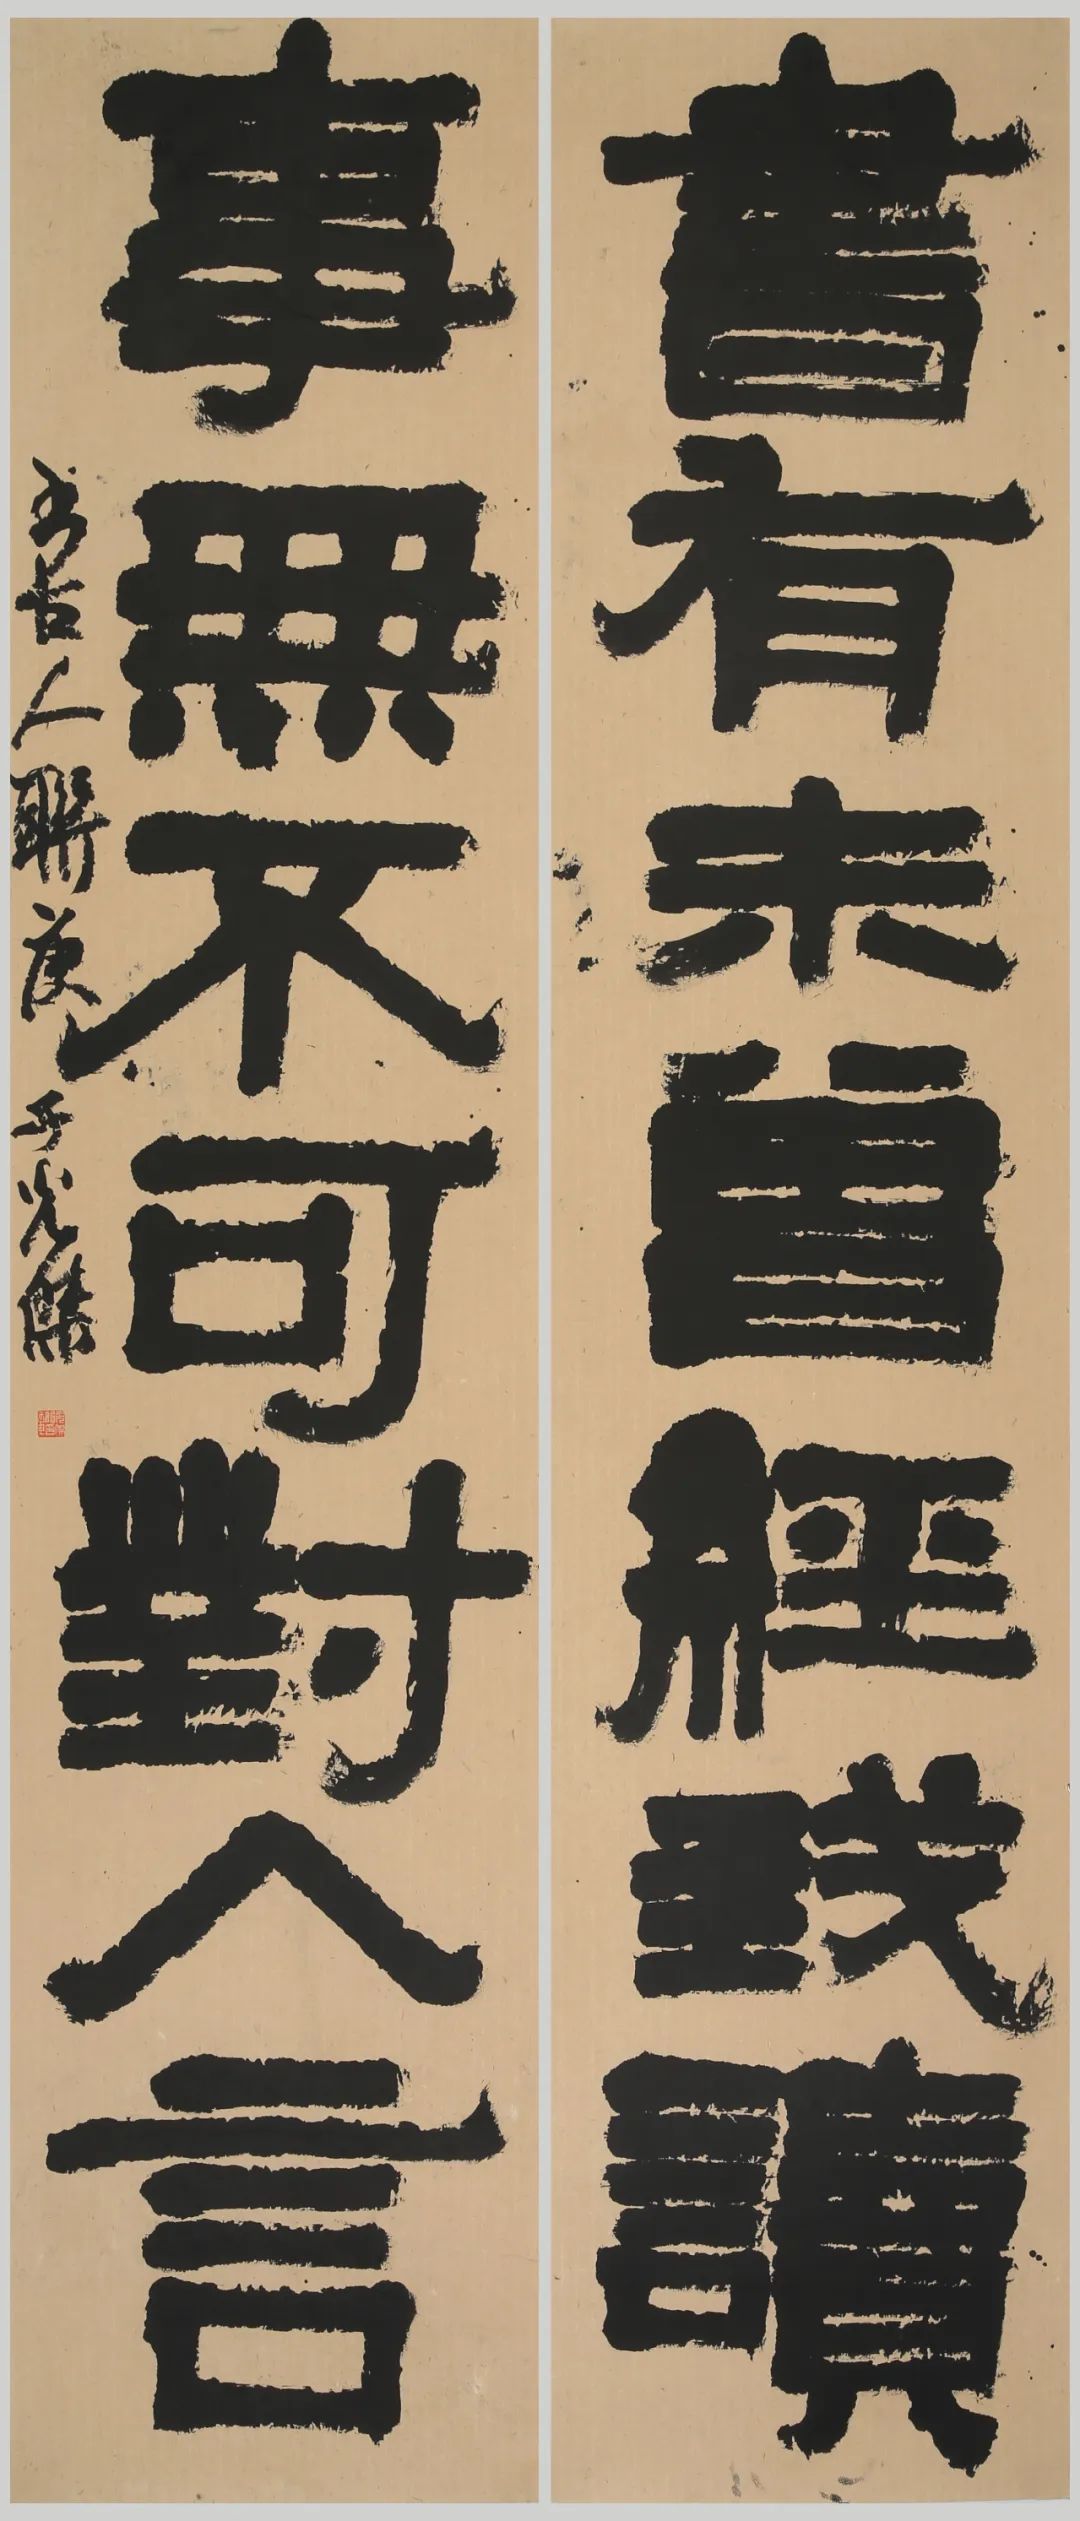 書有未曾經我讀
事無不可對人言
書古人聯庚子光傑